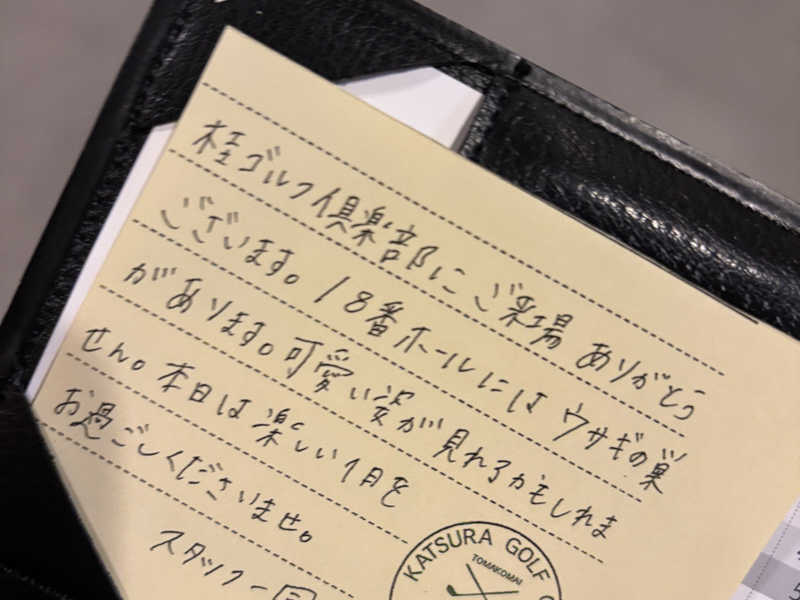 桂ゴルフ倶楽部にご来場ありがとう
ございます。18番ホールにはウサギの巣
があります。可愛い姿が見れるかもしれま
せん。本日は楽しい1日を
お過ごしくださいませ。
スタッフ一同
KATSURA GOLF C
TOMAKOMAI
5